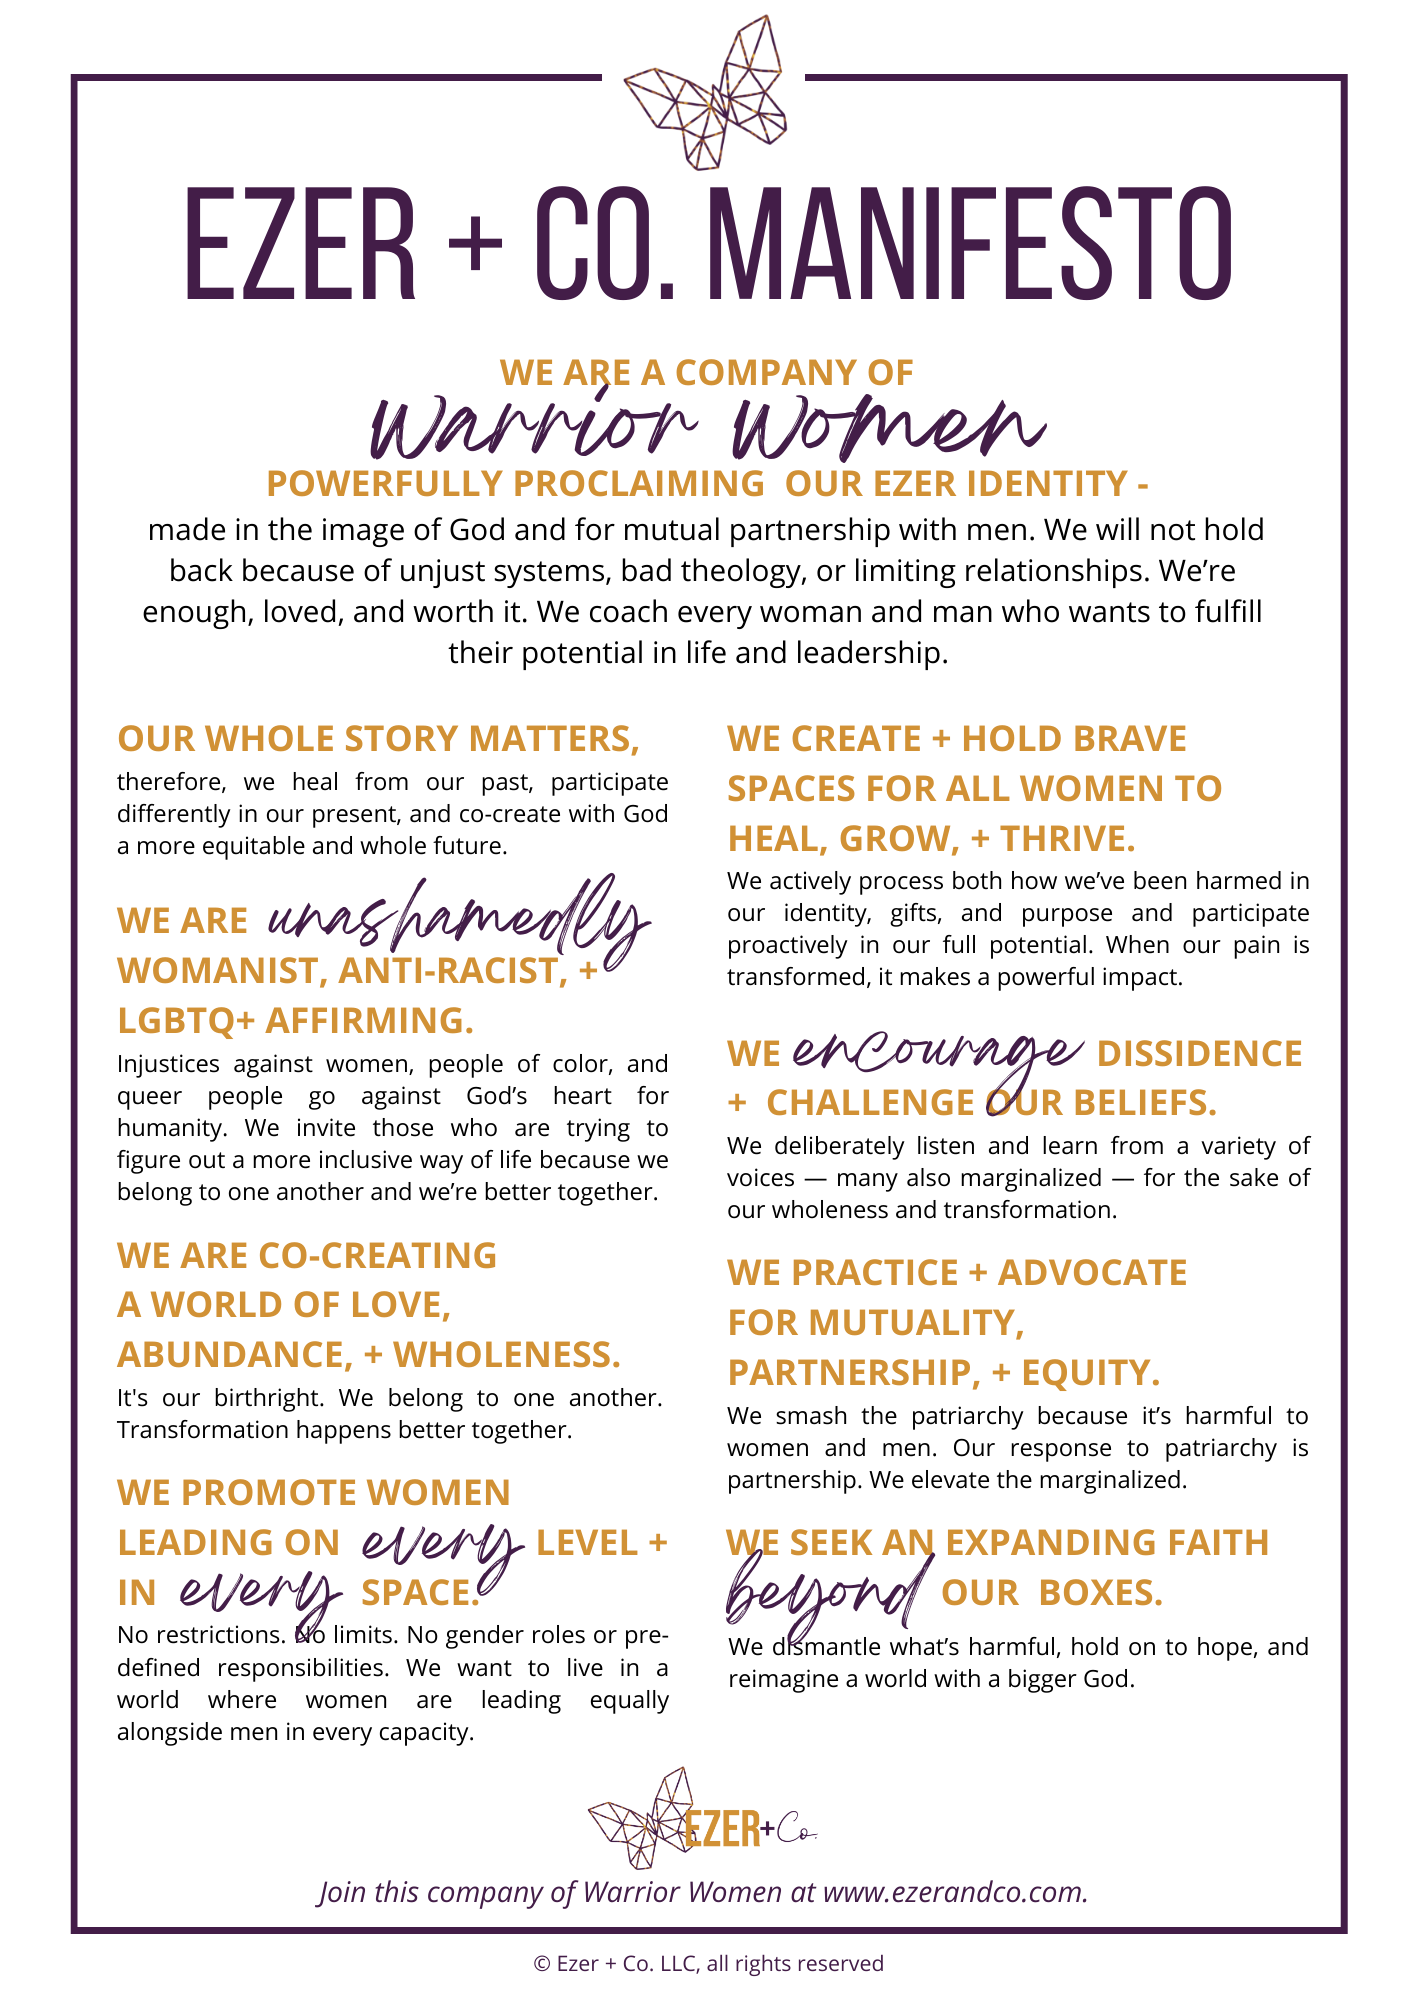 EZER + CO. MANIFESTO
WE ARE A COMPANY OF
Warrior Women
POWERFULLY PROCLAIMING OUR EZER IDENTITY -
made in the image of God and for mutual partnership with men. We will not hold
back because of unjust systems, bad theology, or limiting relationships. We’re
enough, loved, and worth it. We coach every woman and man who wants to fulfill
their potential in life and leadership.
OUR WHOLE STORY MATTERS,
therefore, we heal from our past, participate
differently in our present, and co-create with God
a more equitable and whole future.
WE ARE unashamedly
WOMANIST, ANTI-RACIST, +
LGBTQ+ AFFIRMING.
Injustices against women, people of color, and
queer people go against God’s heart for
humanity. We invite those who are trying to
figure out a more inclusive way of life because we
belong to one another and we’re better together.
WE ARE CO-CREATING
A WORLD OF LOVE,
ABUNDANCE, + WHOLENESS.
It's our birthright. We belong to one another.
Transformation happens better together.
WE PROMOTE WOMEN
LEADING ON every LEVEL +
IN every SPACE.
No restrictions. No limits. No gender roles or pre-
defined responsibilities. We want to live in a
world where women are leading equally
alongside men in every capacity.
WE CREATE + HOLD BRAVE
SPACES FOR ALL WOMEN TO
HEAL, GROW, + THRIVE.
We actively process both how we’ve been harmed in
our identity, gifts, and purpose and participate
proactively in our full potential. When our pain is
transformed, it makes a powerful impact.
WE encourage DISSIDENCE
+ CHALLENGE OUR BELIEFS.
We deliberately listen and learn from a variety of
voices — many also marginalized — for the sake of
our wholeness and transformation.
WE PRACTICE + ADVOCATE
FOR MUTUALITY,
PARTNERSHIP, + EQUITY.
We smash the patriarchy because it’s harmful to
women and men. Our response to patriarchy is
partnership. We elevate the marginalized.
WE SEEK AN EXPANDING FAITH
beyond OUR BOXES.
We dismantle what’s harmful, hold on to hope, and
reimagine a world with a bigger God.
EZER+Co.
Join this company of Warrior Women at www.ezerandco.com.
© Ezer + Co. LLC, all rights reserved